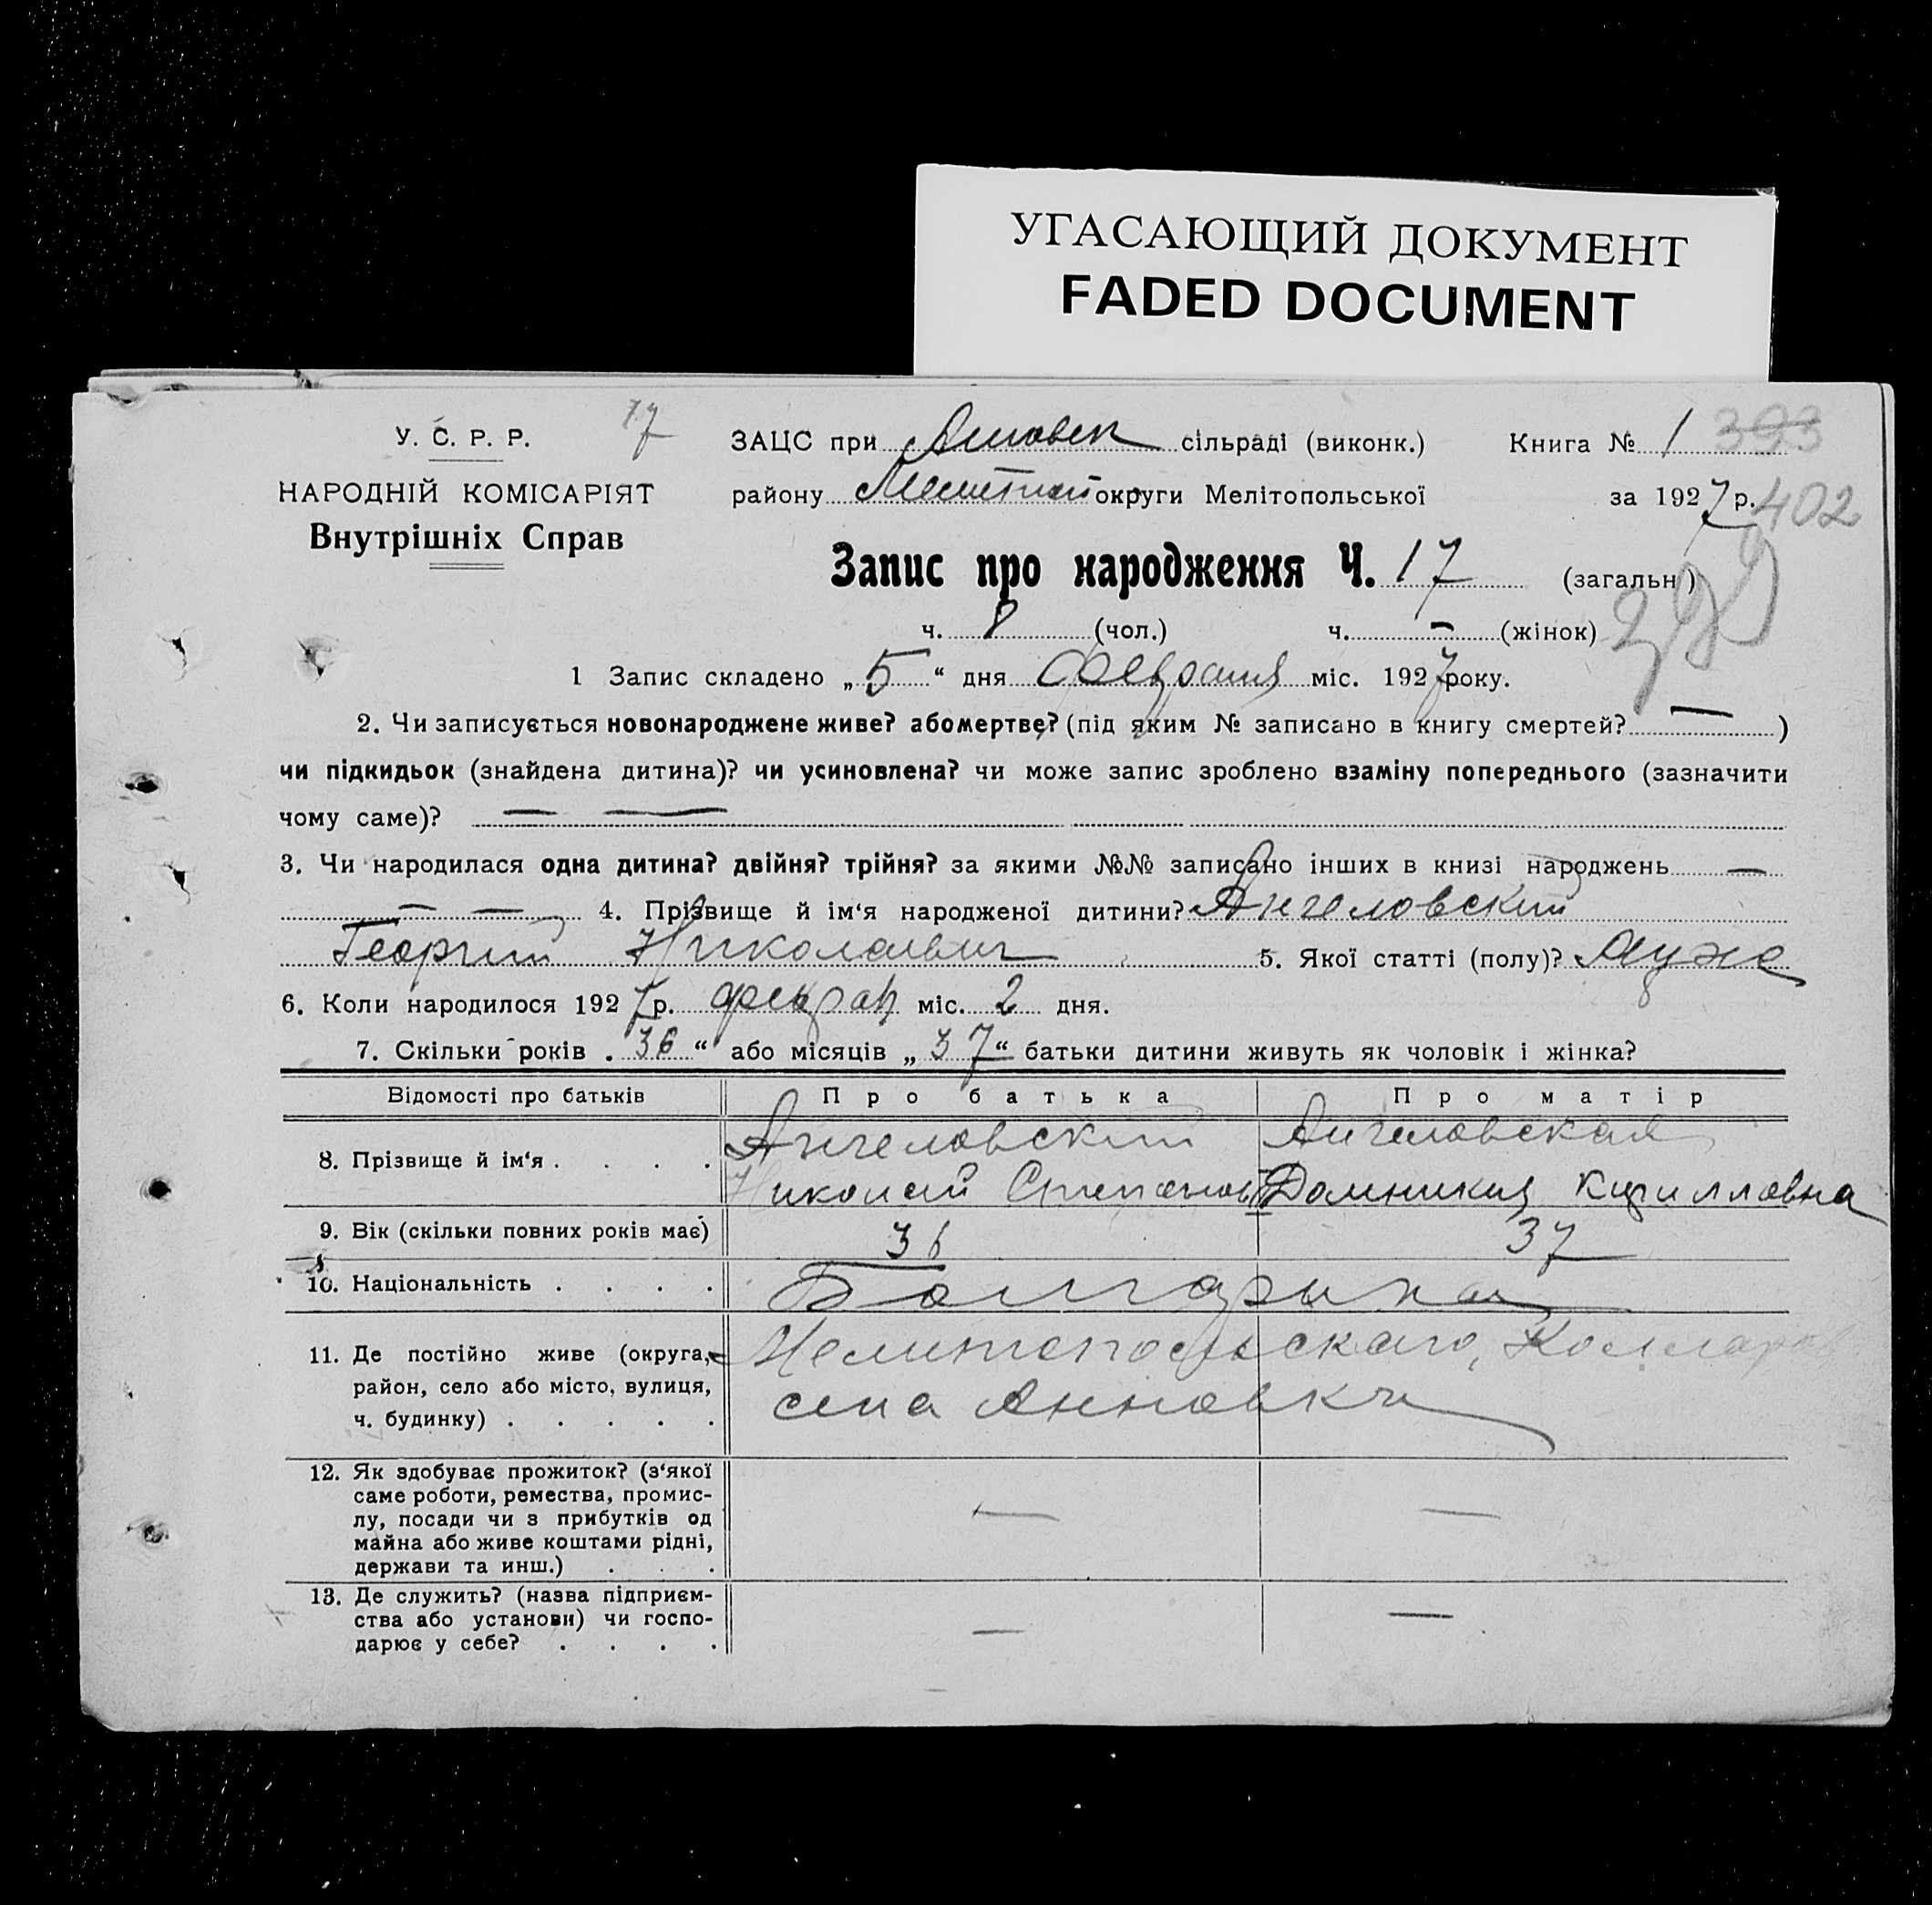 УГАСАЮЩИЙ ДОКУМЕНТ
FADED DOCUMENT
У. С. Р. Р.
77
ЗАЦС при сільраді (виконк.)
Книга № 1 393
НАРОДНІЙ КОМІСАРІЯТ
району округи Мелітопольської
за 1927 р. 402
Внутрішніх Справ
Запис про народження Ч. 17 (загальн)
ч. 8 (чол.) ч. — (жінок)
1 Запис складено „5“ дня февраля міс. 1927 року.
2. Чи записується новонароджене живе? або мертве? (під яким № записано в книгу смертей? — )
чи підкидьок (знайдена дитина)? чи усиновлена? чи може запис зроблено взаміну попереднього (зазначити
чому саме)? — —
3. Чи народилася одна дитина? двійня? трійня? за якими №№ записано інших в книзі народжень —
— — 4. Прізвище й ім‘я народженої дитини? Ангеловский
Георгий Николаевич 5. Якої статті (полу)?
6. Коли народилося 1927 р. міс. 2 дня.
7. Скільки років „36“ або місяців „37“ батьки дитини живуть як чоловік і жінка?
Відомості про батьків Про батька Про матір
8. Прізвище й ім‘я . . . . Ангеловский Ангеловская
Николай Степанов Домникия Кирилловна
9. Вік (скільки повних років має) 36 37
10. Національність . . . . Болгары
11. Де постійно живе (округа, Мелитопольскаго, Коллар
район, село або місто, вулиця, села Анновки
ч. будинку) . . . . .
12. Як здобуває прожиток? (з‘якої
саме роботи, ремества, промис-
лу, посади чи з прибутків од — —
майна або живе коштами рідні,
держави та инш.) . . .
13. Де служить? (назва підприєм-
ства або установи) чи госпо- — —
дарює у себе? . . . .